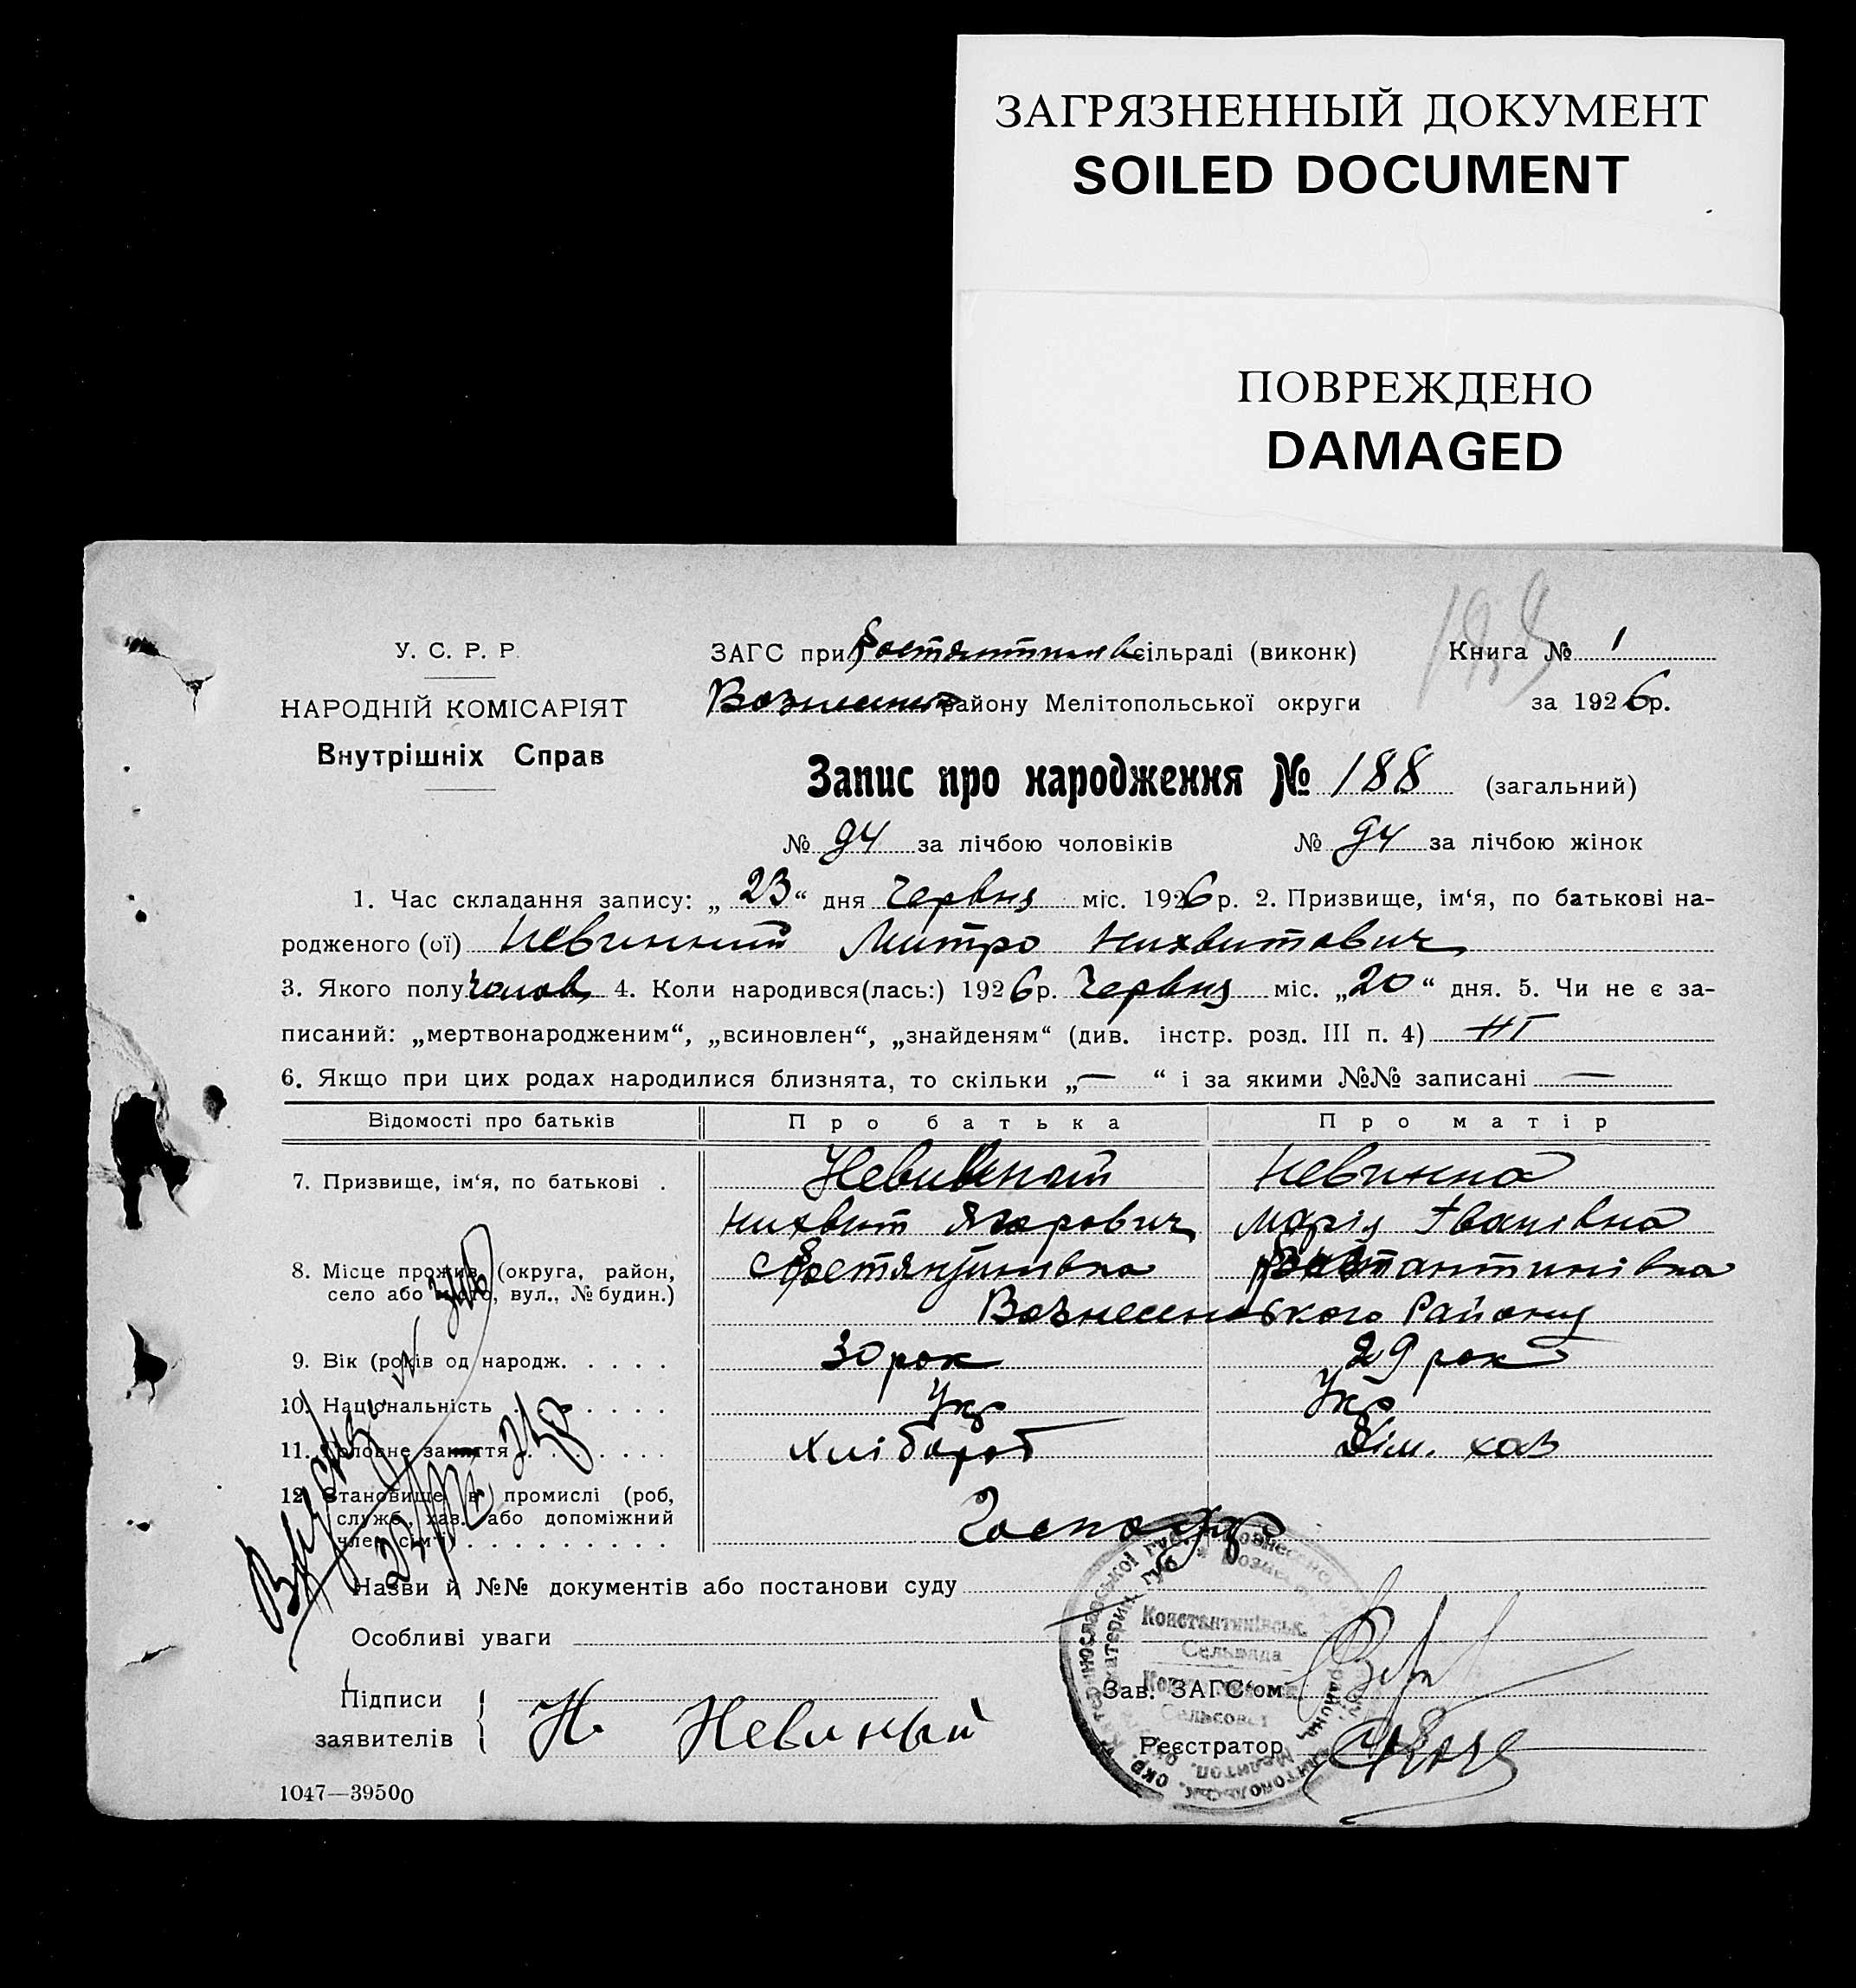 ЗАГРЯЗНЕННЫЙ ДОКУМЕНТ
SOILED DOCUMENT
ПОВРЕЖДЕНО
DAMAGED
У. С. Р. Р.
НАРОДНІЙ КОМІСАРІЯТ
Внутрішніх Справ
ЗАГС при сільраді (виконк) Книга № 1
району Мелітопольської округи за 1926р.
Запис про народження № 188 (загальний)
№ 94 за лічбою чоловіків № 94 за лічбою жінок
1. Час складання запису: „23“ дня Червня міс. 1926р. 2. Призвище, ім‘я, по батькові на-
родженого (ої) Невинний Митро Нихвитович
3. Якого полу чолов 4. Коли народився(лась:) 1926р. Червня міс. „20“ дня. 5. Чи не є за-
писаний: „мертвонародженим“, „всиновлен“, „знайденям“ (див. інстр. розд. III п. 4) НІ
6. Якщо при цих родах народилися близнята, то скільки „—“ і за якими №№ записані —
Відомості про батьків Про батька Про матір
7. Призвище, ім‘я, по батькові . Невинний Невинна
Нихвит Ягорович Марія Іванівна
8. Місце прожив. (округа, район,
село або місто, вул., № будин.) Костянтинівка Костантинівка
Вознесенського Району
9. Вік (років од народж. . . . . 30 рок 29 рок
10. Національність . . . . . . Укр Укр
11. Головне заняття . . . . . . Хлібороб Дім. хаз
12. Становище в промислі (роб,
служб., хаз. або допоміжний
член сім‘ї) . . . . . . . . . Господар
Назви й №№ документів або постанови суду
Особливі уваги
Константинівськ.
Сельрада
Сельсовет
Підписи
заявителів { Н. Невиный
Зав. ЗАГС‘ом
Реєстратор
1047—39500